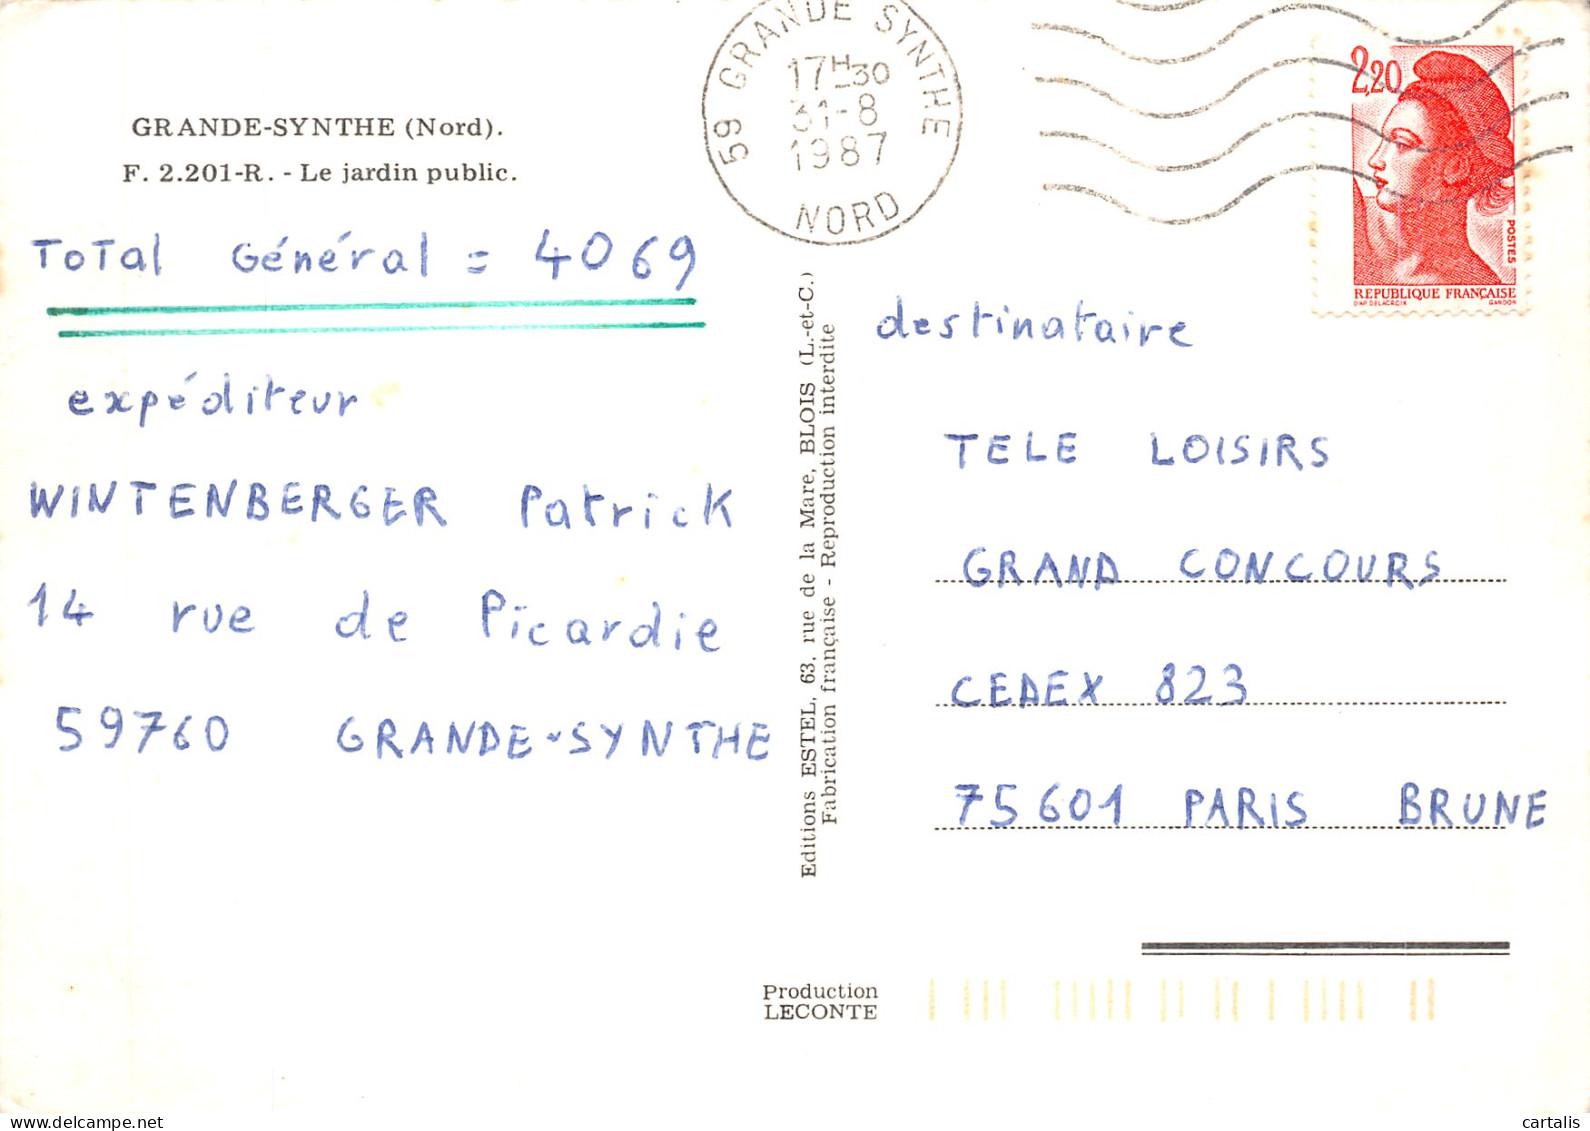 GRANDE-SYNTHE (Nord).
F. 2.201-R. - Le jardin public.
ToTal Général = 4069
expéditeur
WINTENBERGER Patrick
14 rue de Picardie
59760 GRANDE-SYNTHE
59 GRANDE SYNTHE
17H30
31-8
1987
NORD
2,20
POSTES
REPUBLIQUE FRANÇAISE
D'AP DELACROIX GANDON
Editions ESTEL, 63, rue de la Mare, BLOIS (L.-et-C.)
Fabrication française - Reproduction interdite
destinataire
TELE LOISIRS
GRAND CONCOURS
CEDEX 823
75601 PARIS BRUNE
Production
LECONTE
cartalis